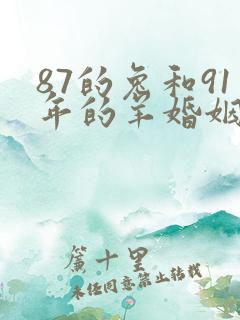 87的兔和91
年的羊婚姻
簾十里
未经同意禁止转载